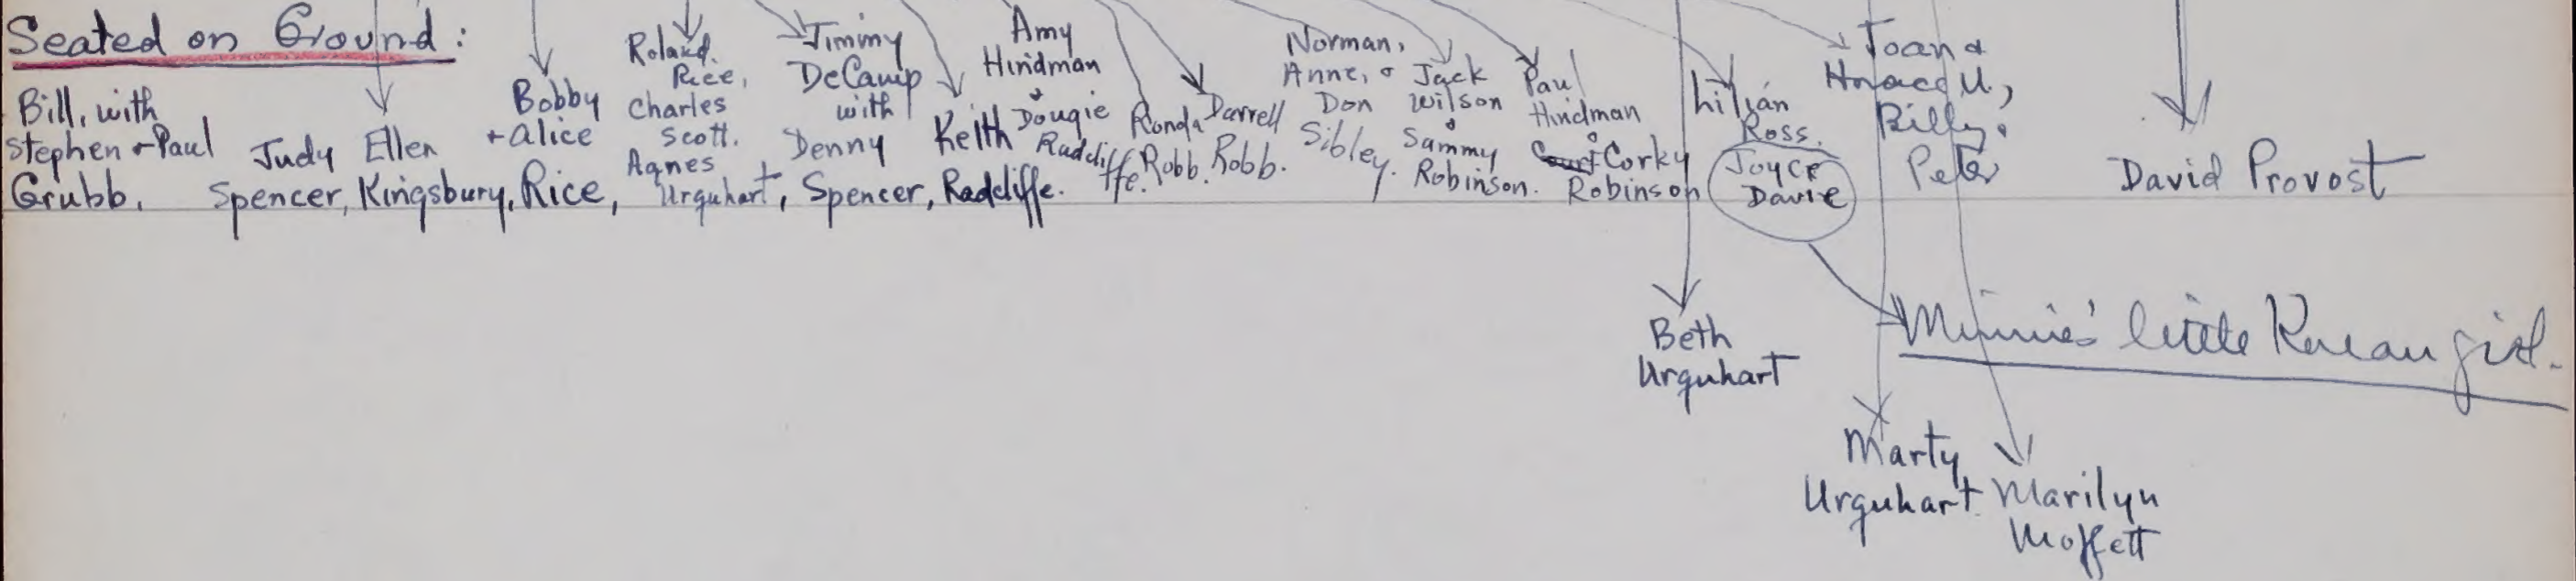 Seated on Ground:
Bill, with
Stephen + Paul
Grubb.
Judy
Spencer,
Ellen
Kingsbury,
Bobby
+ Alice
Rice,
Roland
Rice,
Charles
Scott.
Agnes
Urquhart,
Jimmy
DeCamp
with
Denny
Spencer,
Keith
Radcliffe.
Amy
Hindman
+
Dougie
Radcliffe.
Ronda
Robb.
Darrell
Robb.
Norman,
Anne, +
Don
Sibley.
Jack
Wilson
+
Sammy
Robinson.
Paul
Hindman
+
Corky
Robinson
Lilian
Ross.
Joyce
Davie
Joan +
Horace M,
Billy.
Peter
David Provost
Beth
Urquhart
Minnie's little Korean girl.
Marty
Urquhart
Marilyn
Moffett